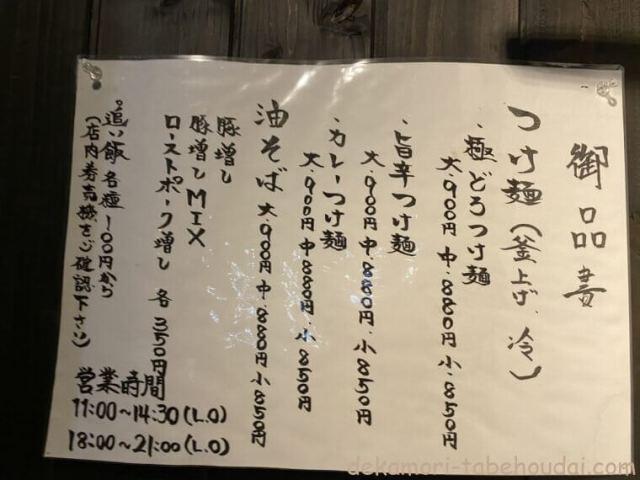 御品書
つけ麺(釜上げ、冷)
・極どろつけ麺
大.900円 中.880円 小.850円
・旨辛つけ麺
大.900円 中.880円 小.850円
・カレーつけ麺
大.900円 中.880円 小.850円
油そば 大.900円 中.880円 小.850円
豚増し
豚増しMIX
ローストポーク増し 各350円
°追い飯 各種100円から
(店内券売機をご確認下さい)
営業時間
11:00~14:30(L.O)
18:00~21:00(L.O)
dekamori-tabehoudai.com